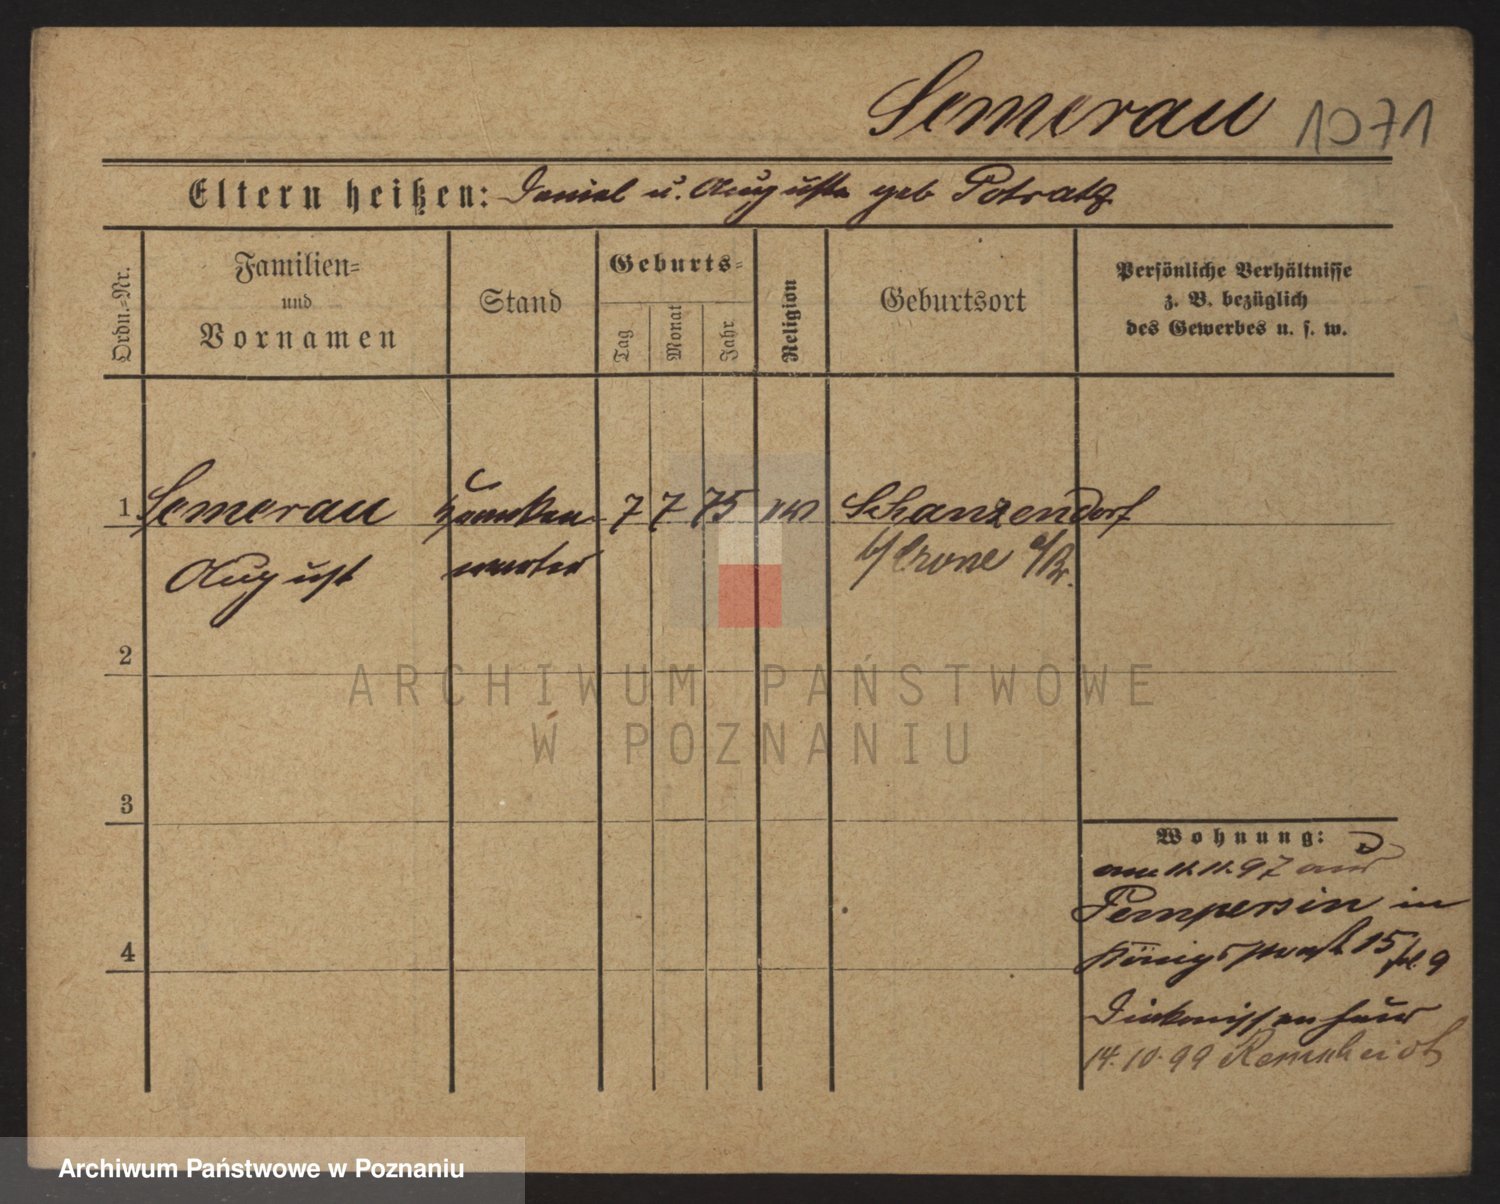 Semerau 1071
Eltern heißen: Daniel u. Auguste geb Potratz
Ordn.=Nr.
Familien=
und
Vornamen
Stand
Geburts=
Tag
Monat
Jahr
Religion
Geburtsort
Persönliche Verhältnisse
z. B. bezüglich
des Gewerbes u. s. w.
1 Semerau Kranken 7 7 75 ev Schanzendorf
August wärter b/ Crone a/Br.
2
3
4
Wohnung:
am 11.11.97 aus
Tempersin in
Königstraß 15 bl. 9
Diakonissenhaus
14.10.99 Remscheidt
ARCHIWUM PAŃSTWOWE
W POZNANIU
Archiwum Państwowe w Poznaniu